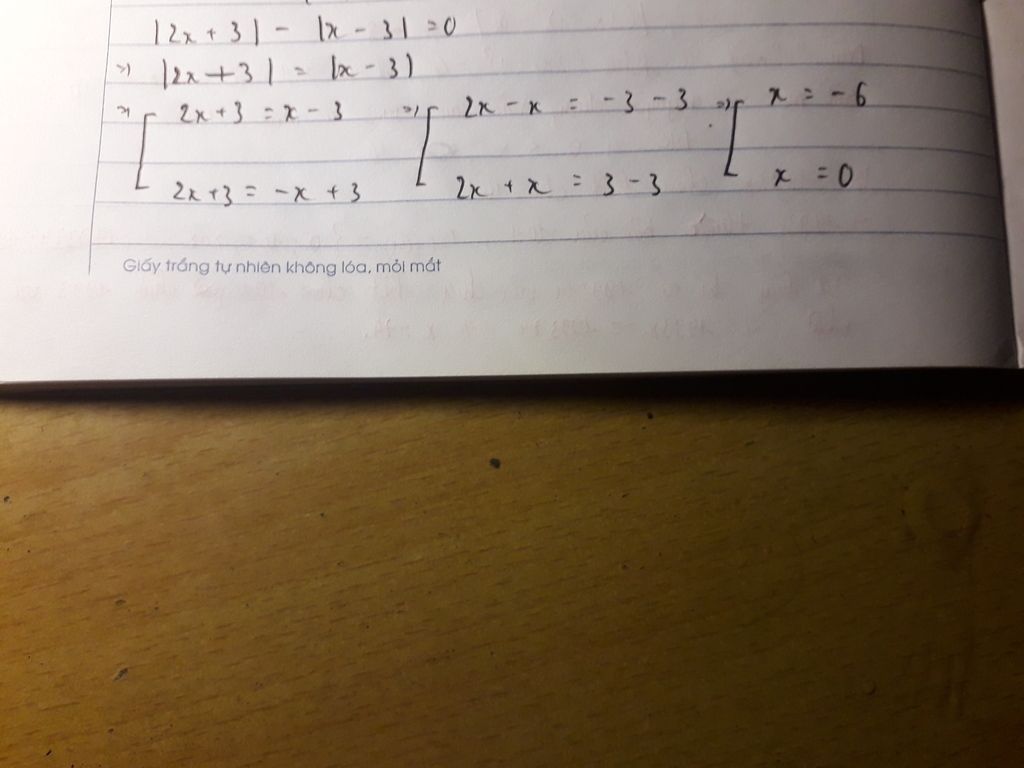 |2x + 3| - |x - 3| = 0
=> |2x + 3| = |x - 3|
=> [ 2x + 3 = x - 3 => [ 2x - x = -3 - 3 => [ x = -6
2x + 3 = -x + 3 2x + x = 3 - 3 x = 0
Giấy trắng tự nhiên không lóa, mỏi mắt